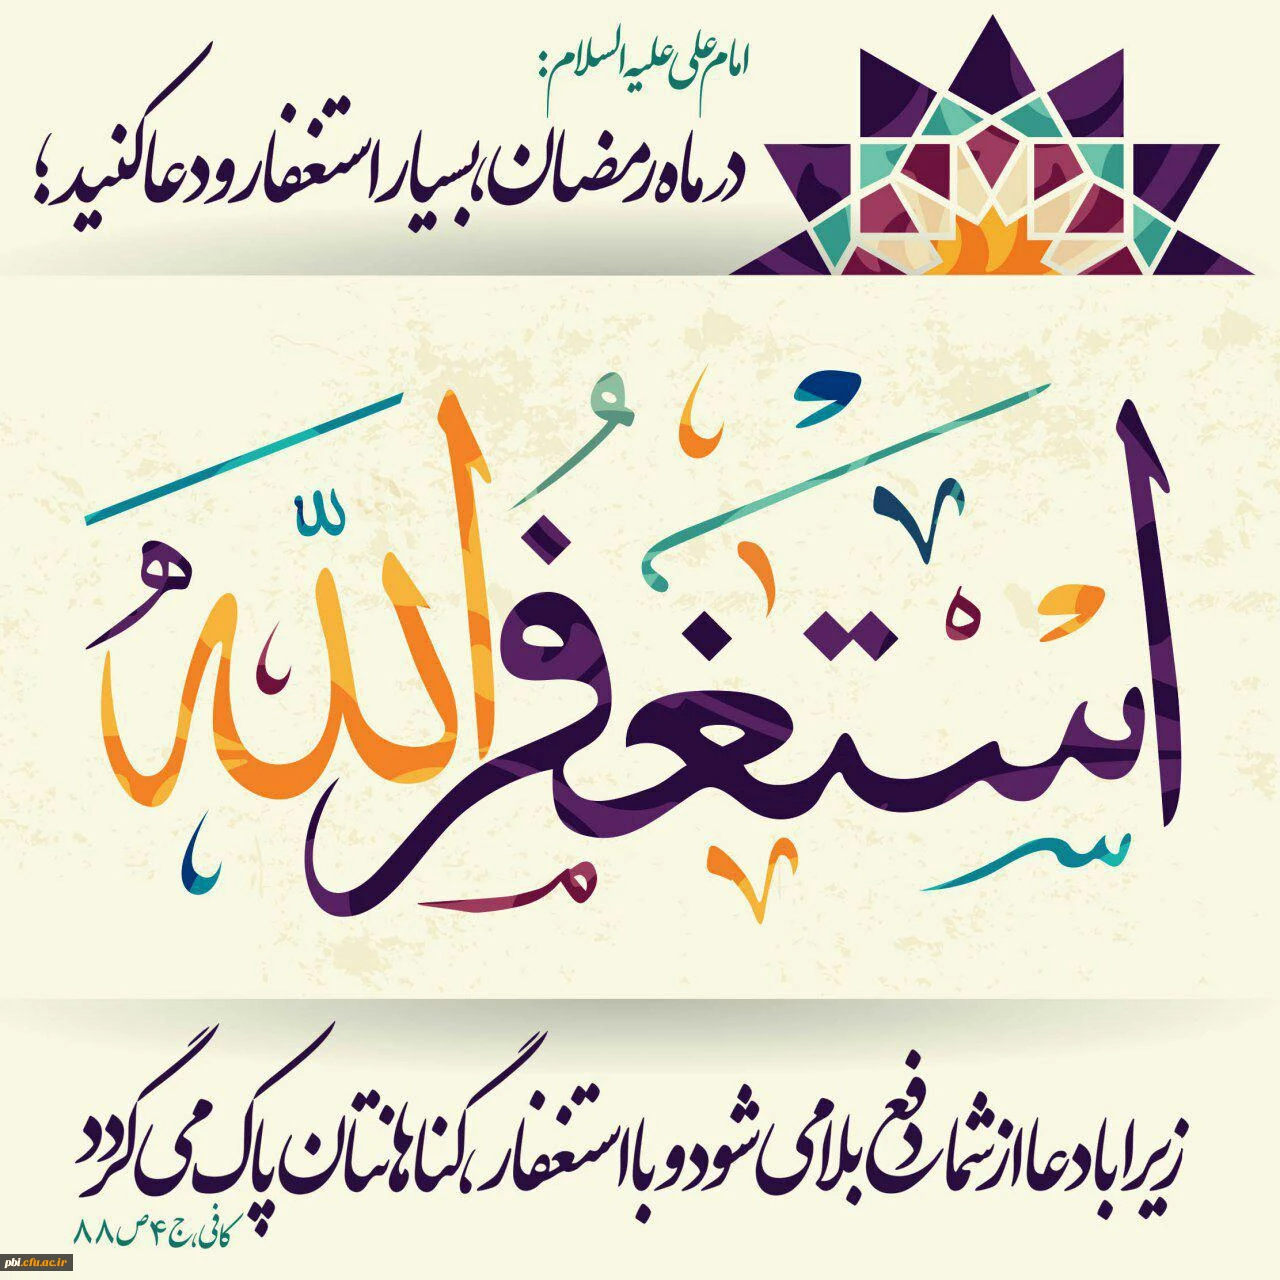 امام علی علیه السلام:
در ماه رمضان، بسیار استغفار و دعا کنید؛
استغفر الله
زیرا با دعا از شما دفع بلا می شود و با استغفار، گناهانتان پاک می گردد
کافی، ج ۴ ص ۸۸
pbi.cfu.ac.ir